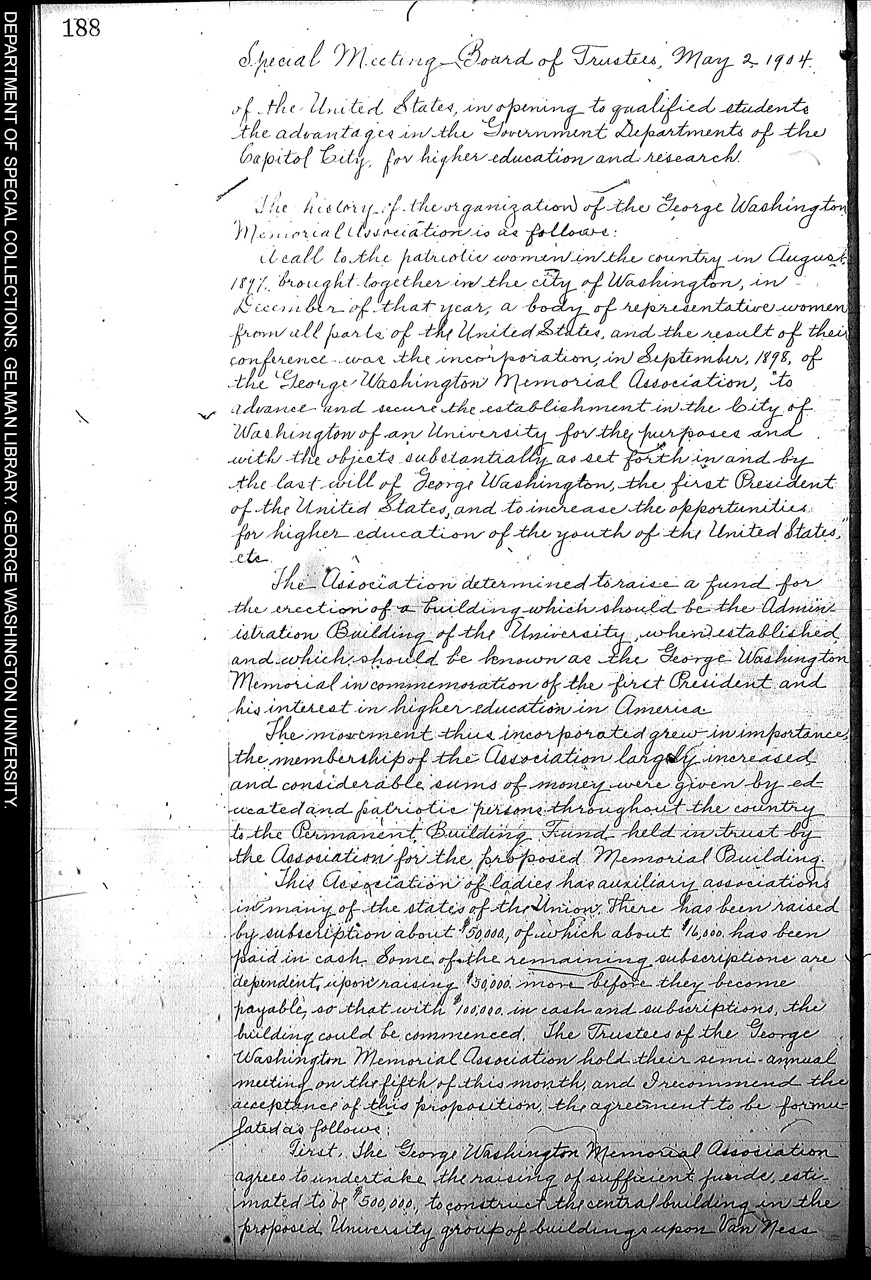 188
Special Meeting—Board of Trustees, May 2 1904.
of the United States, in opening to qualified students
the advantages in the Government Departments of the
Capitol City, for higher education and research.
The history of the organization of the George Washington
Memorial Association is as follows:
A call to the patriotic women in the country in August,
1897, brought together in the city of Washington, in
December of that year, a body of representative women
from all parts of the United States, and the result of their
conference was the incorporation, in September, 1898, of
the George Washington Memorial Association, "to
advance and secure the establishment in the City of
Washington of an University for the purposes and
with the objects substantially as set forth in and by
the last will of George Washington, the first President
of the United States, and to increase the opportunities
for higher education of the youth of the United States,"
etc.
The Association determined to raise a fund for
the erection of a building which should be the Admin-
istration Building of the University, when established,
and which should be known as the George Washington
Memorial in commemoration of the first President and
his interest in higher education in America.
The movement thus incorporated grew in importance,
the membership of the Association largely increased,
and considerable sums of money were given by ed
ucated and patriotic persons throughout the country
to the Permanent Building Fund held in trust by
the Association for the proposed Memorial Building.
This Association of ladies has auxiliary associations
in many of the states of the Union. There has been raised
by subscription about $50,000, of which about $16,000. has been
paid in cash. Some of the remaining subscriptions are
dependent, upon raising $50,000. more before they become
payable, so that with $100,000. in cash and subscriptions, the
building could be commenced. The Trustees of the George
Washington Memorial Association hold their semi-annual
meeting on the fifth of this month, and I recommend the
acceptance of this proposition, the agreement to be formu-
lated as follows:
First, The George Washington Memorial Association
agrees to undertake the raising of sufficient funds, esti-
mated to be $500,000, to construct the central building in the
proposed University group of buildings upon Van Ness
DEPARTMENT OF SPECIAL COLLECTIONS, GELMAN LIBRARY, GEORGE WASHINGTON UNIVERSITY.